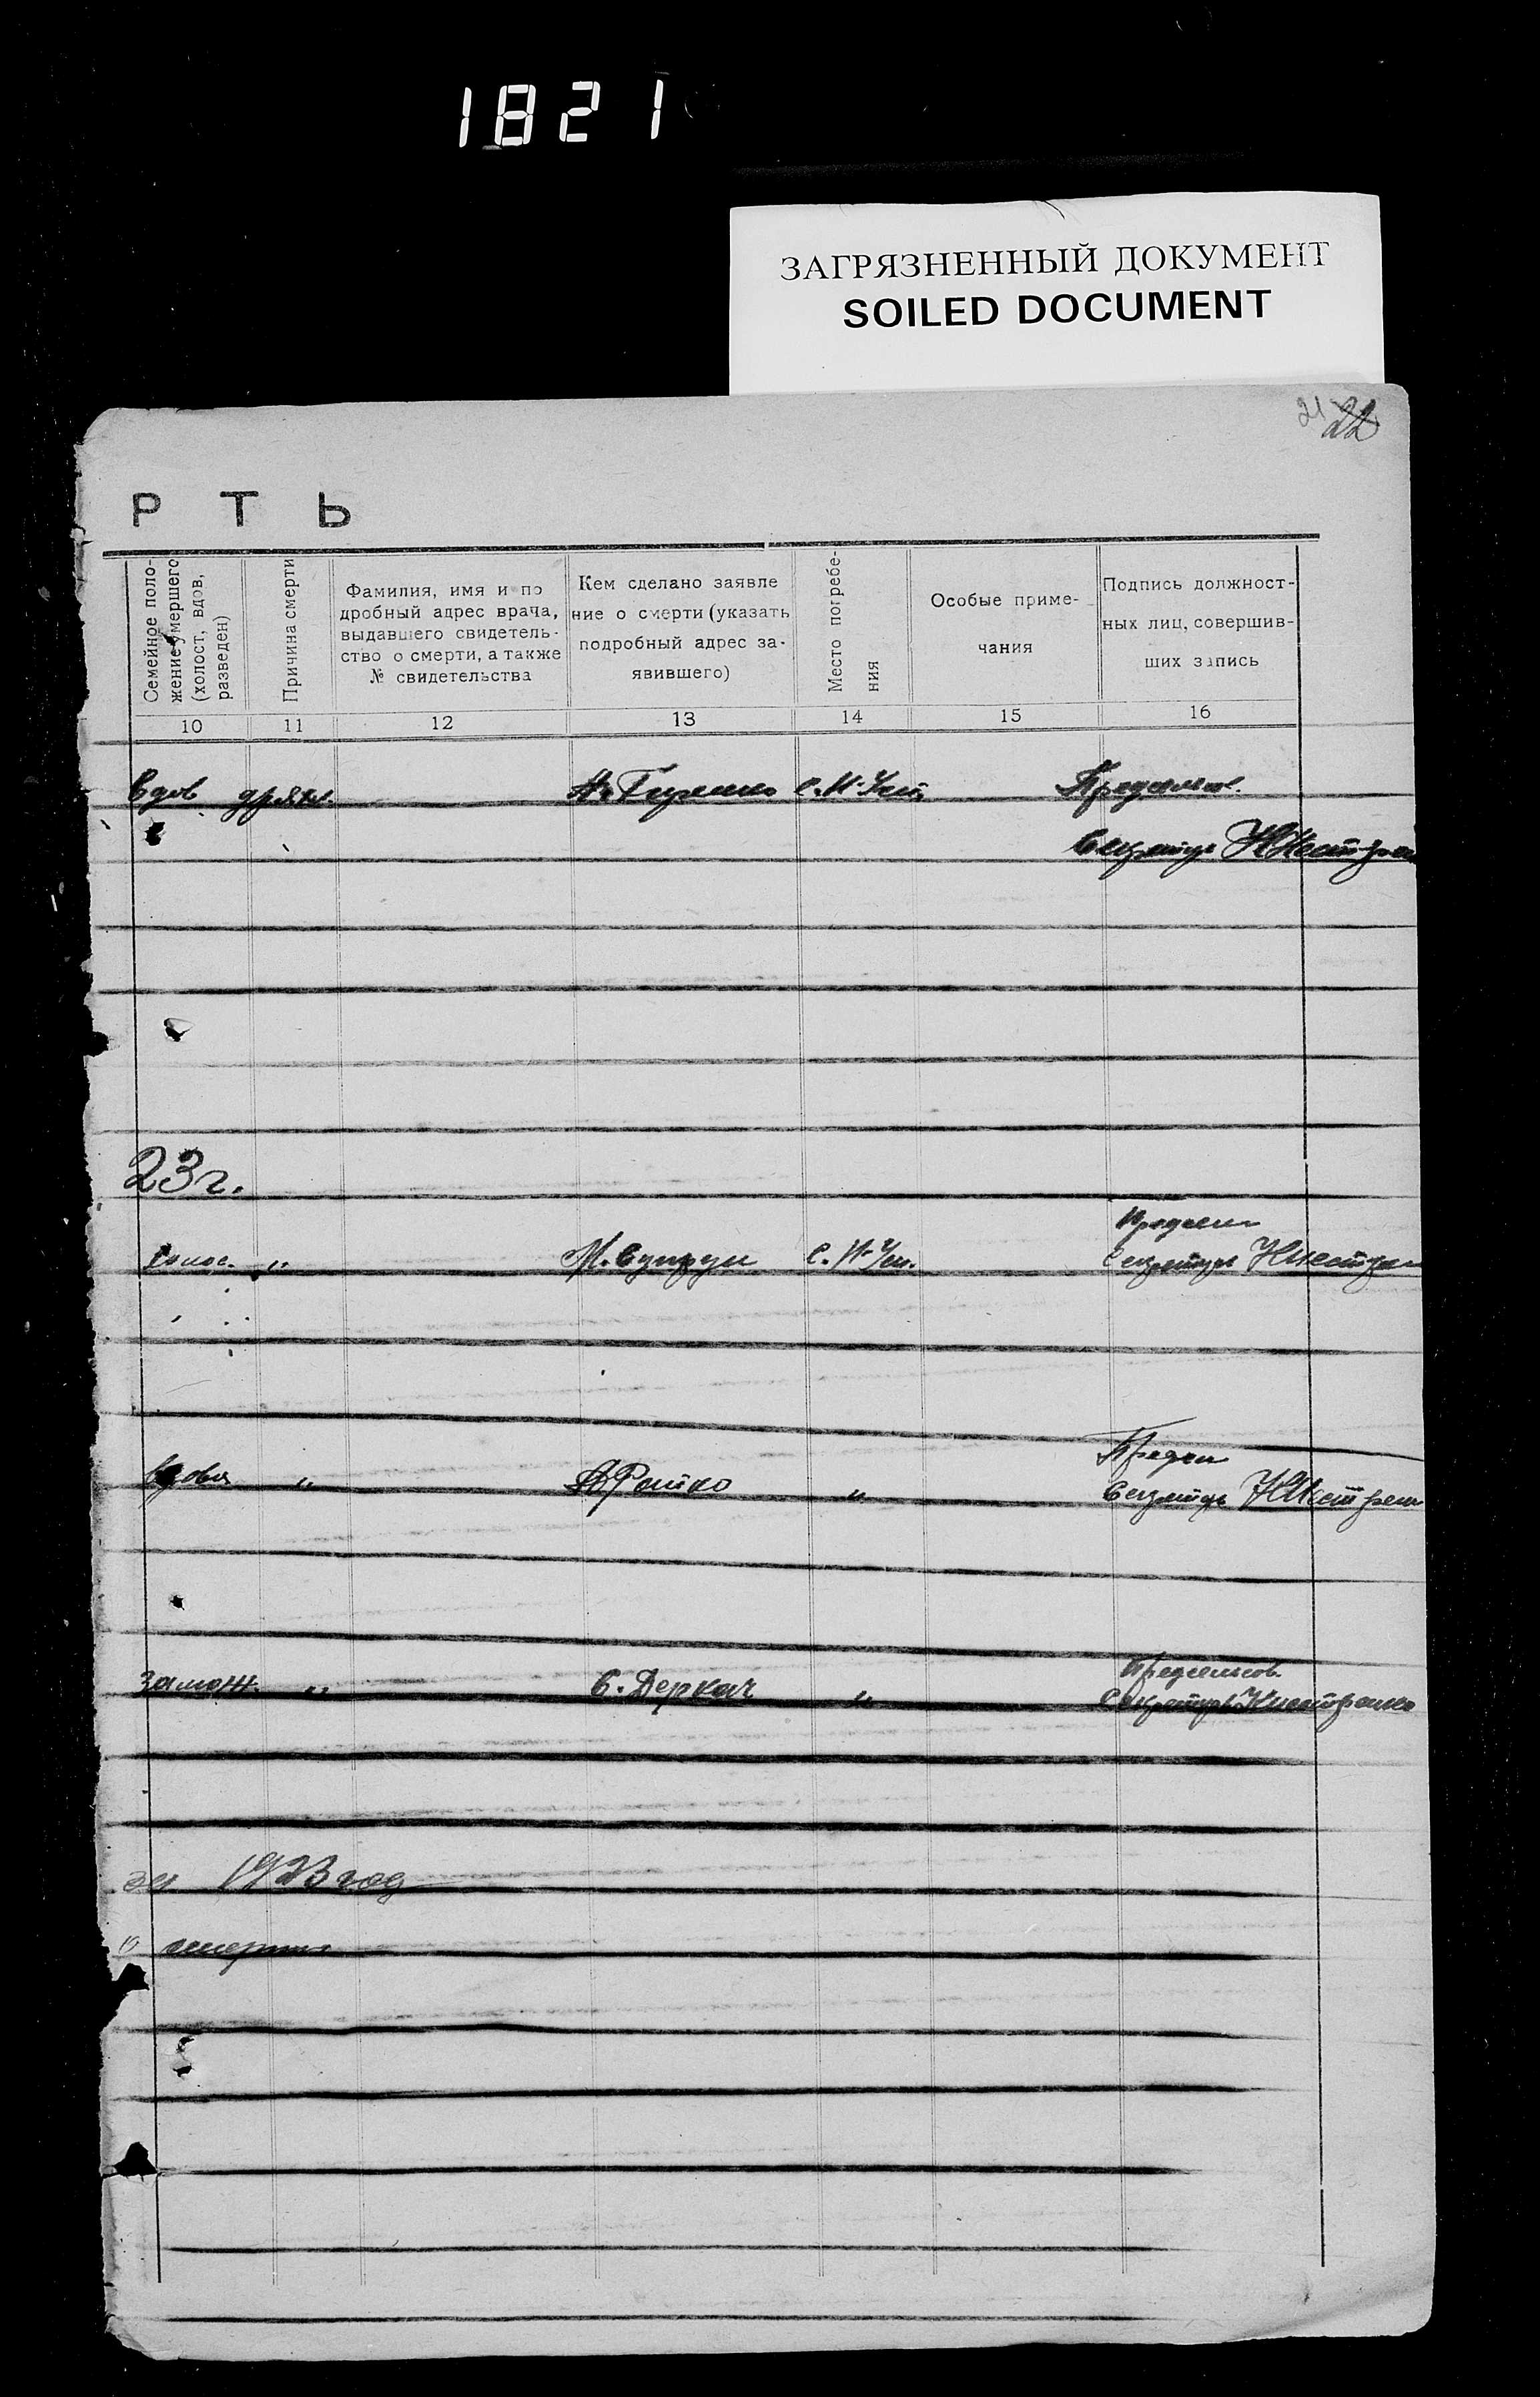 1821
ЗАГРЯЗНЕННЫЙ ДОКУМЕНТ
SOILED DOCUMENT
21 22
Р Т Ь
Семейное поло-
жение умершего
(холост, вдов,
разведен)
Причина смерти
Фамилия, имя и по
дробный адрес врача,
выдавшего свидетель-
ство о смерти, а также
№ свидетельства
Кем сделано заявле
ние о смерти (указать
подробный адрес за-
явившего)
Место погребе-
ния
Особые приме-
чания
Подпись должност-
ных лиц, совершив-
ших запись
10 11 12 13 14 15 16
Вдов дряхл.
Секретарь
23 г.
холос. " М. Супрун
Секретарь
вдова " "
Секретарь
замож. " С. Деркач "
Предсельсов.
Секретарь
за 1923 год